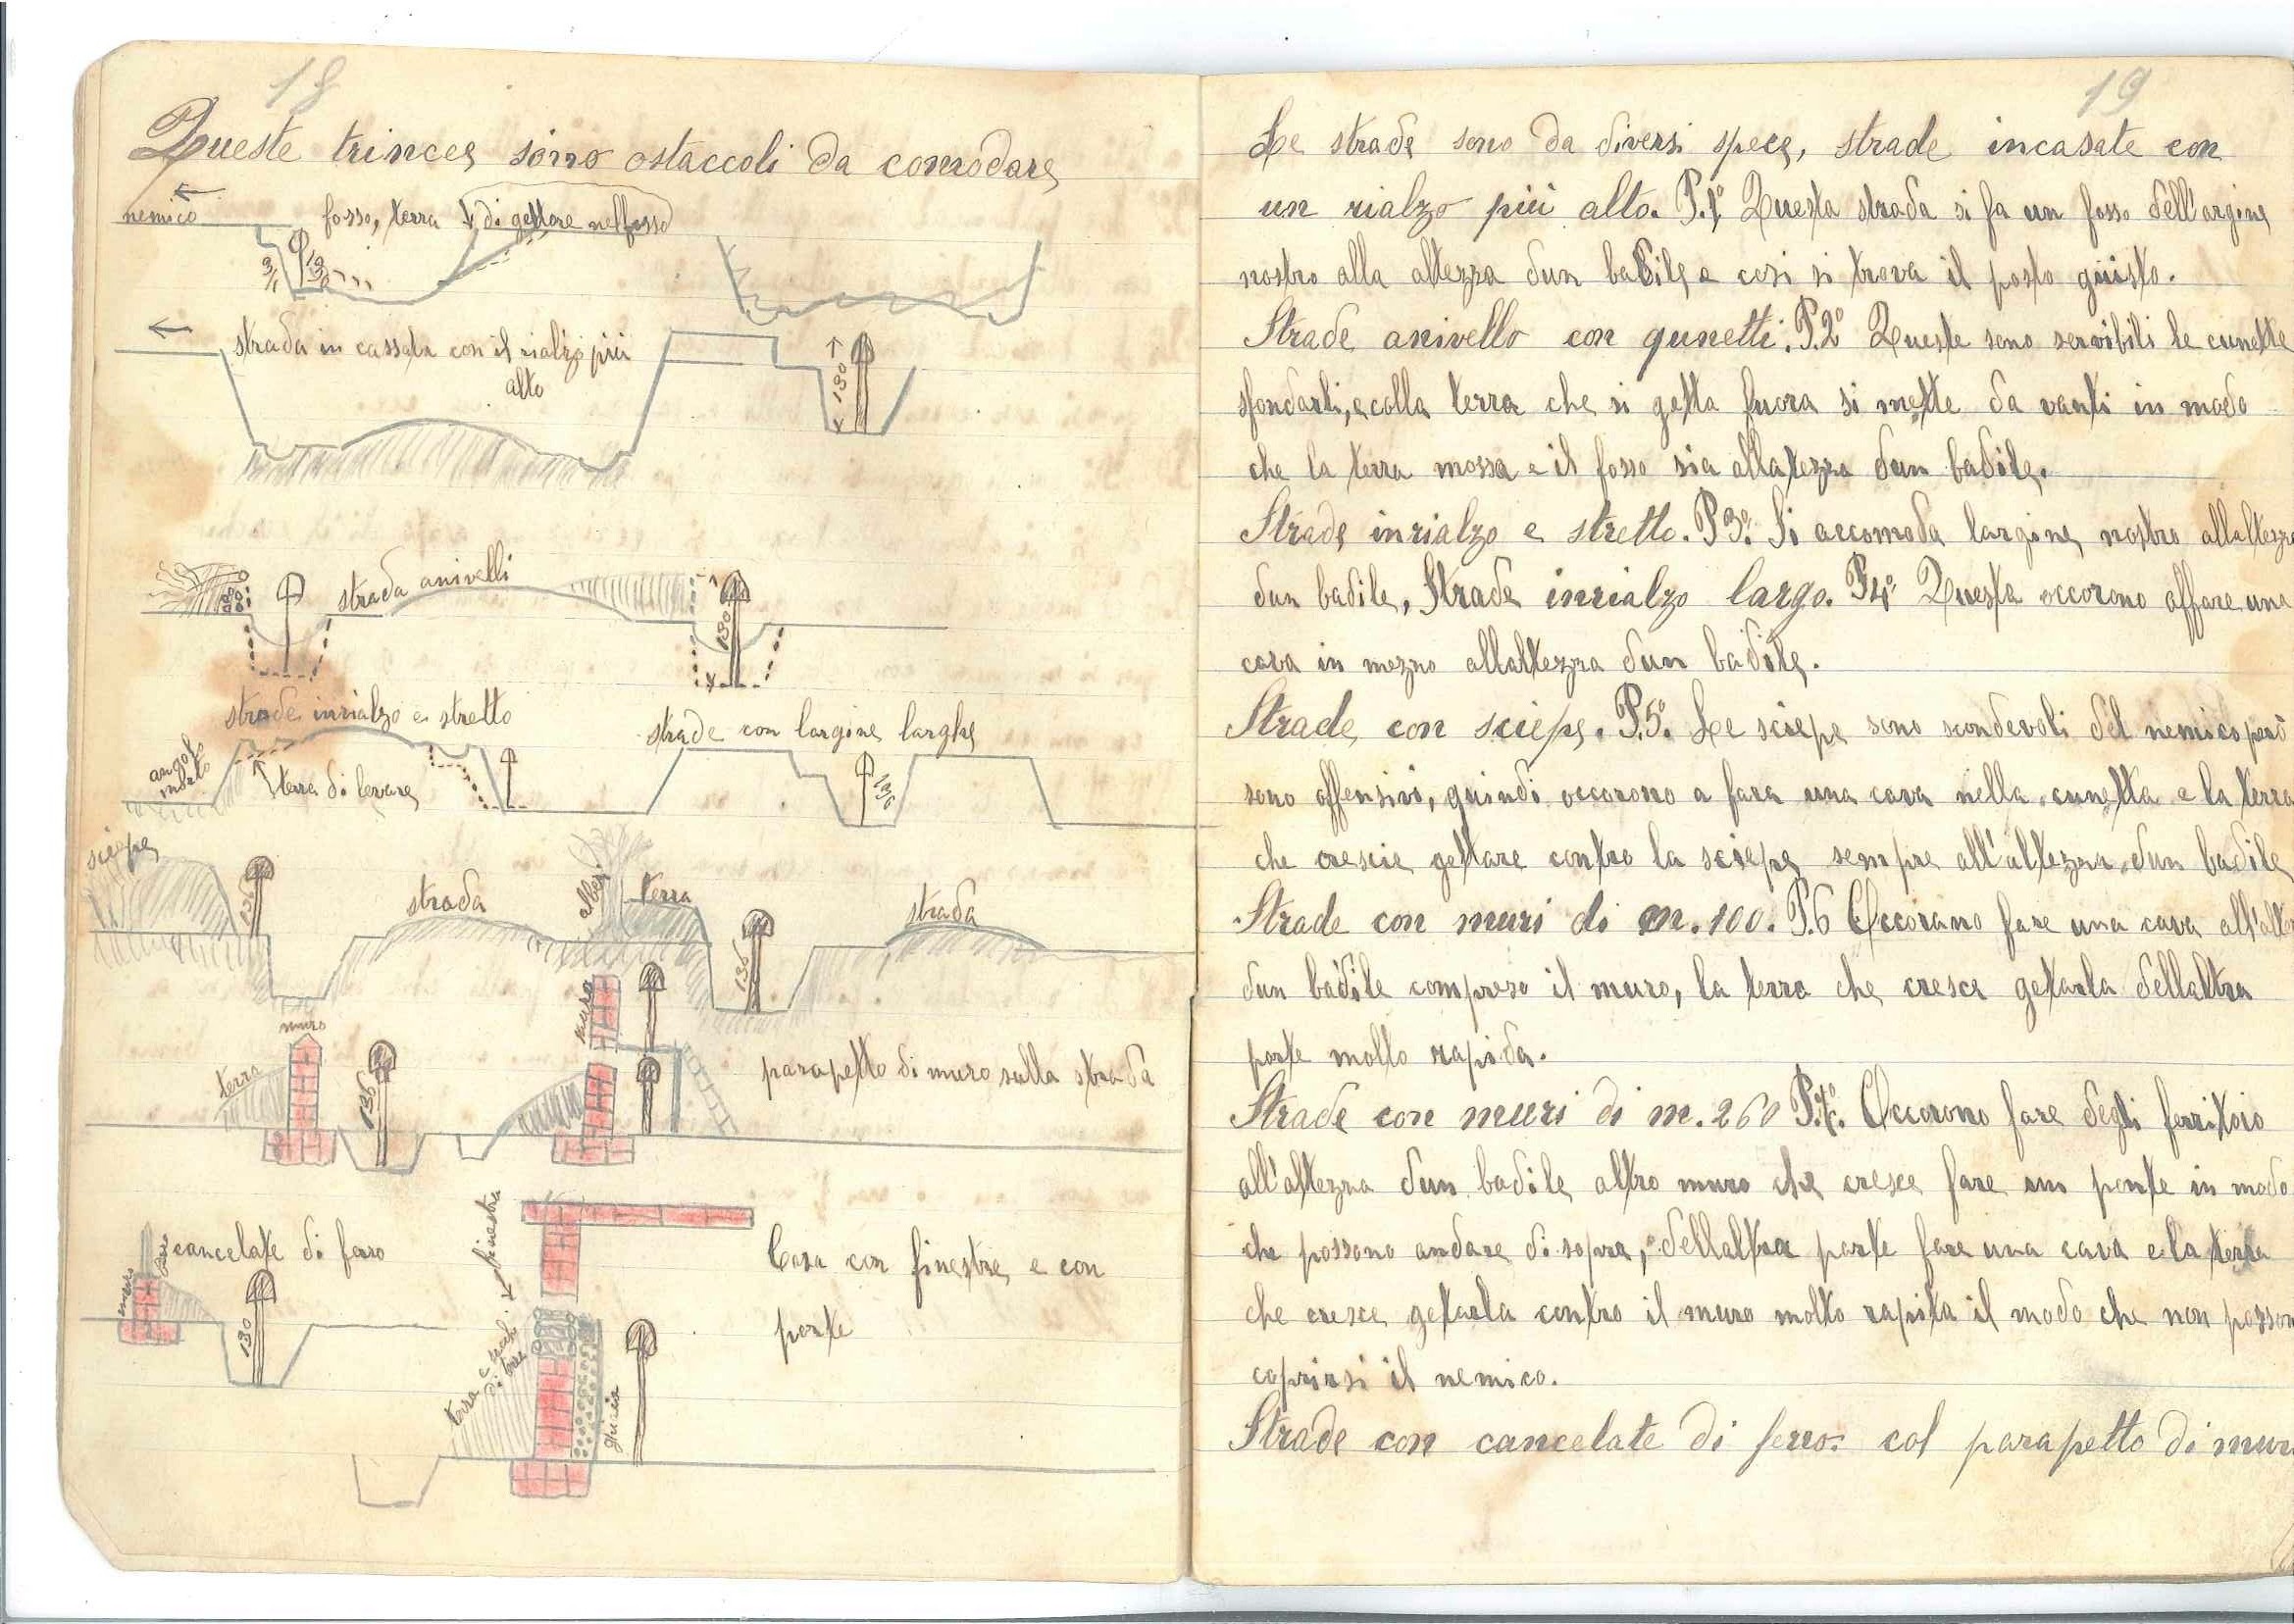 18
Queste trincee sono ostaccoli da comodare
nemico
fosso, terra di gettare nel fosso
130
strada in cassata con il rialzo più
alto
130
strada anivelli
130
strade inrialzo e stretto
strade con largine larghe
angolo
terra di levare
130
sciepe
136
strada
alberi
terra
136
strada
muro
muro
terra
136
parapetto di muro sulla strada
cancelate di ferro
muro
130
finestra
Casa con finestre e con
porte
terra e sachi
di terra
giaia
19
Le strade sono da diversi spece, strade incasate con
un rialzo più alto. P.1º Questa strada si fa un fosso dell'argine
nostro alla altezza dun badile e cosi si trova il posto giusto.
Strade anivello con qunetti. P.2º Queste sono servibili le cunette
sfondarli, e colla terra che si getta fuora si mette da vanti in modo
che la terra mossa e il fosso sia allatezza dun badile.
Strade inrialzo e stretto. P3º. Si accomoda largine nostro allaltezza
dun badile, Strade inrialzo largo. P4º Questa occorono affare una
cava in mezzo allaltezza dun badile.
Strade con sciepe. P.5º. Le sciepe sono scondevoli del nemico però
sono offensivi, quindi occorono a fara una cava nella cunetta e la terra
che crescie gettare contro la sciepe sempre all'altezza dun badile
Strade con muri di m. 100. P.6 Occorano fare una cava all'alte
dun badile compreso il muro, la terra che cresce getarla dellaltra
parte molto rapida.
Strade con muri di m. 260 P.7º. Occorono fare degli ferritoio
all'altezza dun badile altro muro che cresce fare un ponte in modo
che possono andare di sopra, dellaltra parte fare una cava e la terra
che cresce getarla contro il muro molto rapita il modo che non posson
coprirsi il nemico.
Strade con cancelate di ferro col parapetto di muro